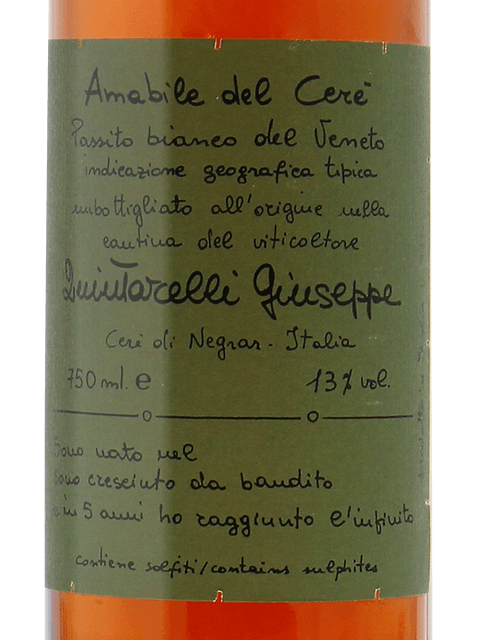 Amabile del Cerè
Passito bianco del Veneto
indicazione geografica tipica
imbottigliato all'origine nella
cantina del viticoltore
Quintarelli Giuseppe
Cerè di Negrar - Italia
750 ml. e 13% vol.
Sono nato nel
Sono cresciuto da bandito
e in 5 anni ho raggiunto l'infinito
contiene solfiti/contains sulphites